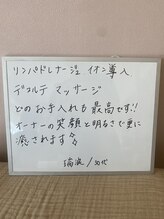 リンパドレナージュ イオン導入
デコルテ マッサージ
どのお手入れも 最高です!!
オーナーの笑顔と明るさで更に
癒されます
/30代